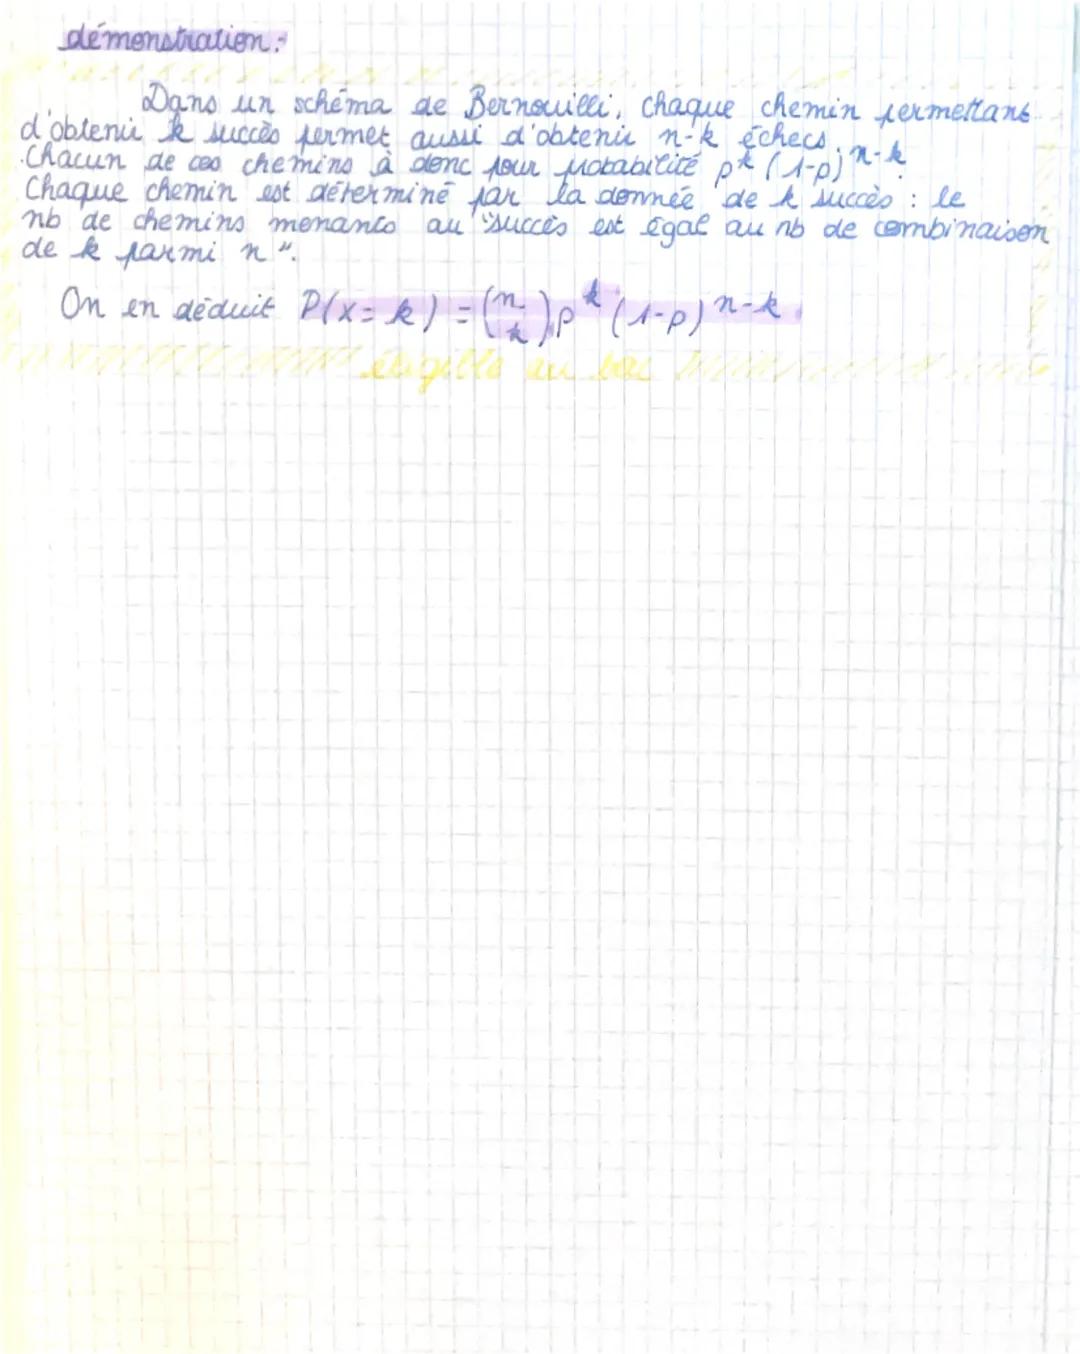 démonstration:
Dans un schéma de Bernouilli, chaque chemin permettant
d'obtenir k succès permet aussi d'obtenir n-k échecs.
Chacun de ces chemins à donc pour probabilité p^k (1-p)^n-k.
Chaque chemin est déterminé par la donnée de k succès : le
nb de chemins menants au "succès est égal au nb de combinaison
de k parmi n".
On en déduit P(x=k) = (n k) p^k (1-p)^n-k.
éligible au bac